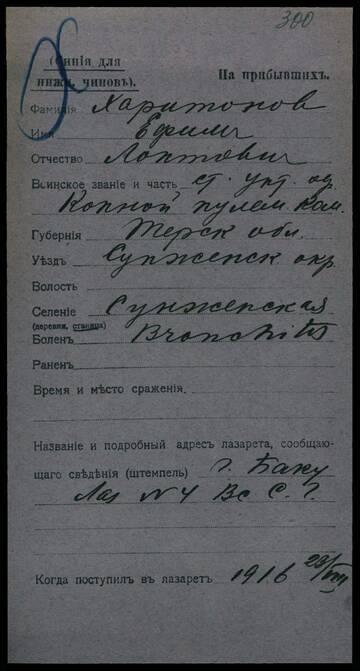 300
(Синія для
нижн. чиновъ).
На прибывшихъ.
Фамилія Харитонов
Имя Ефимъ
Отчество
Воинское званіе и часть ст. унт. оф.
Конной пулем. ком.
Губернія Терск обл.
Уѣздъ Сунженск окр
Волость
Селеніе Сунженская
(деревня, станица)
Боленъ Bronchitis
Раненъ
Время и мѣсто сраженія.
Названіе и подробный адресъ лазарета, сообщаю-
щаго свѣдѣнія (штемпель) г. Баку
Лаз N 4 Вс С. Г.
Когда поступилъ въ лазаретъ 1916 23/VIII